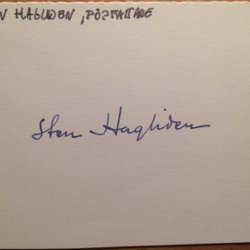 N HAGLIDEN, FÖRFATTARE
Sten Hagliden